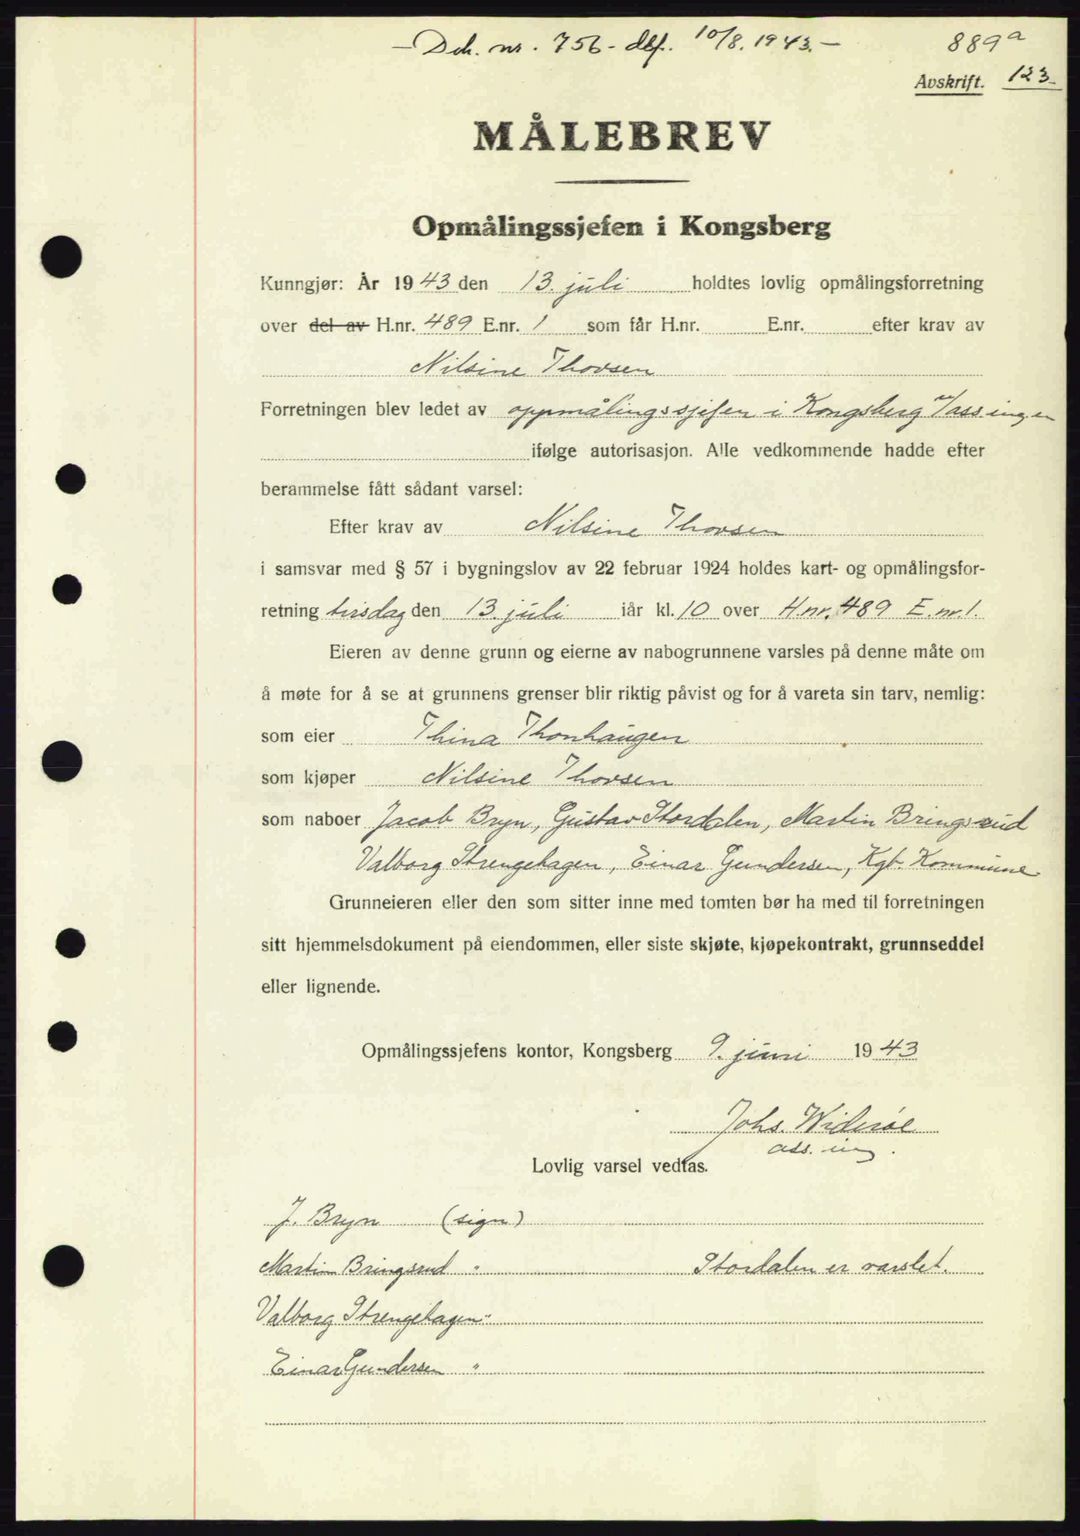 — Dok. nr. 756 - def. 10/8. 1943. — 889a
Avskrift. 123
MÅLEBREV
Opmålingssjefen i Kongsberg
Kunngjør: År 1943 den 13. juli holdtes lovlig opmålingsforretning
over del av H.nr. 489 E.nr. 1 som får H.nr. E.nr. efter krav av
Nilsine Thovsen
Forretningen blev ledet av oppmålingssjefen i Kongsberg v/ass.ingen
ifølge autorisasjon. Alle vedkommende hadde efter
berammelse fått sådant varsel:
Efter krav av Nilsine Thovsen
i samsvar med § 57 i bygningslov av 22 februar 1924 holdes kart- og opmålingsfor-
retning tirsdag den 13. juli iår kl. 10 over H.nr. 489 E.nr. 1.
Eieren av denne grunn og eierne av nabogrunnene varsles på denne måte om
å møte for å se at grunnens grenser blir riktig påvist og for å vareta sin tarv, nemlig:
som eier Thina Thonhaugen
som kjøper Nilsine Thovsen
som naboer Jacob Bryn, Gustav Stordalen, Martin Bringsrud
Valborg Strengehagen, Einar Gundersen, Kgb. Kommune
Grunneieren eller den som sitter inne med tomten bør ha med til forretningen
sitt hjemmelsdokument på eiendommen, eller siste skjøte, kjøpekontrakt, grunnseddel
eller lignende.
Opmålingssjefens kontor, Kongsberg 9. juni 1943
Johs. Widerøe
ass. ing.
Lovlig varsel vedtas.
J. Bryn (sign)
Martin Bringsrud " Stordalen er varslet.
Valborg Strengehagen "
Einar Gundersen "